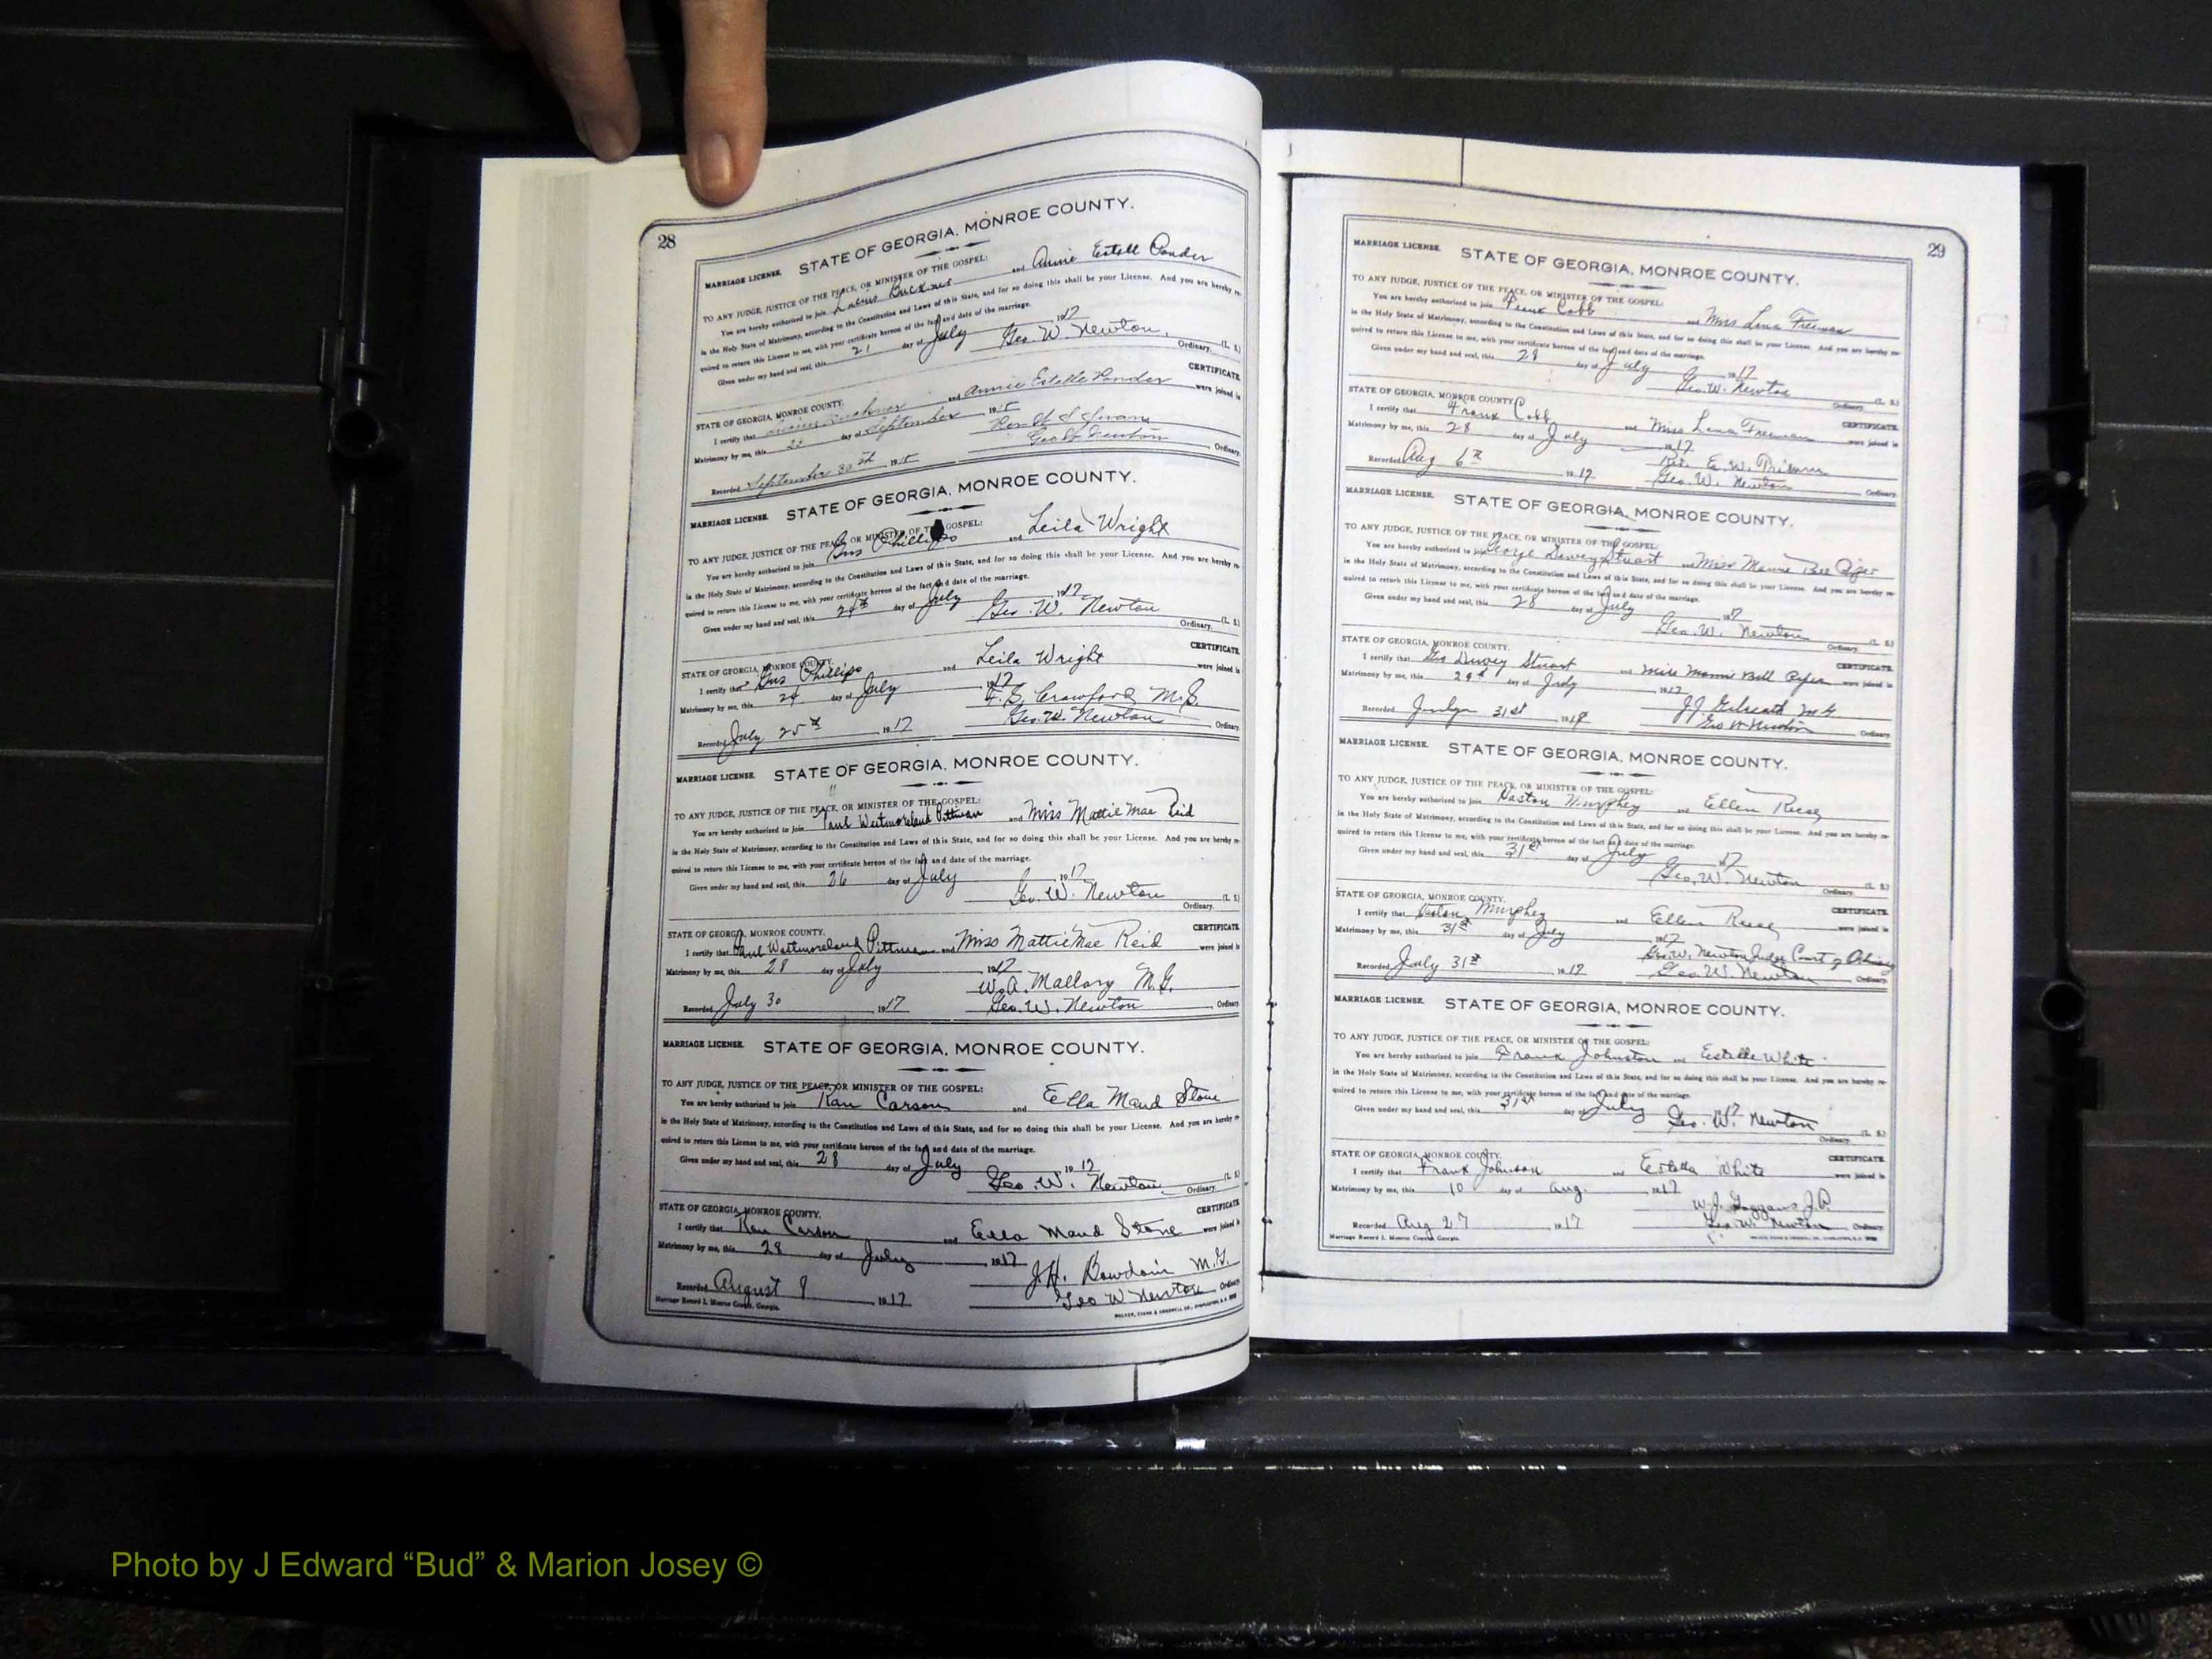 28
MARRIAGE LICENSE. STATE OF GEORGIA, MONROE COUNTY.
TO ANY JUDGE, JUSTICE OF THE PEACE, OR MINISTER OF THE GOSPEL:
You are hereby authorized to join and Annie Estell Ponder
in the Holy State of Matrimony, according to the Constitution and Laws of this State, and for so doing this shall be your License. And you are hereby re-
quired to return this License to me, with your certificate hereon of the fact and date of the marriage.
Given under my hand and seal, this 21 day of July 1917
Geo. W. Newton, (L. S.)
Ordinary.
STATE OF GEORGIA, MONROE COUNTY. CERTIFICATE.
I certify that and Annie Estelle Ponder were joined in
Matrimony by me, this day of September 191
Recorded September 30th 191 Ordinary.
MARRIAGE LICENSE. STATE OF GEORGIA, MONROE COUNTY.
TO ANY JUDGE, JUSTICE OF THE PEACE, OR MINISTER OF THE GOSPEL:
You are hereby authorized to join Gus Phillips and Leila Wright
in the Holy State of Matrimony, according to the Constitution and Laws of this State, and for so doing this shall be your License. And you are hereby re-
quired to return this License to me, with your certificate hereon of the fact and date of the marriage.
Given under my hand and seal, this 24th day of July 1917
Geo. W. Newton (L. S.)
Ordinary.
STATE OF GEORGIA, MONROE COUNTY. CERTIFICATE.
I certify that Gus Phillips and Leila Wright were joined in
Matrimony by me, this 24 day of July 1917
Crawford M.G.
Recorded July 25th 1917 Geo. W. Newton Ordinary.
MARRIAGE LICENSE. STATE OF GEORGIA, MONROE COUNTY.
TO ANY JUDGE, JUSTICE OF THE PEACE, OR MINISTER OF THE GOSPEL:
You are hereby authorized to join Paul Westmoreland Pittman and Miss Mattie Mae Reid
in the Holy State of Matrimony, according to the Constitution and Laws of this State, and for so doing this shall be your License. And you are hereby re-
quired to return this License to me, with your certificate hereon of the fact and date of the marriage.
Given under my hand and seal, this 26 day of July 1917
Geo. W. Newton (L. S.)
Ordinary.
STATE OF GEORGIA, MONROE COUNTY. CERTIFICATE.
I certify that Paul Westmoreland Pittman and Miss Mattie Mae Reid were joined in
Matrimony by me, this 28 day of July 1917
W. A. Mallory M.G.
Recorded July 30 1917 Geo. W. Newton Ordinary.
MARRIAGE LICENSE. STATE OF GEORGIA, MONROE COUNTY.
TO ANY JUDGE, JUSTICE OF THE PEACE, OR MINISTER OF THE GOSPEL:
You are hereby authorized to join Carson and Ella Maud Stone
in the Holy State of Matrimony, according to the Constitution and Laws of this State, and for so doing this shall be your License. And you are hereby re-
quired to return this License to me, with your certificate hereon of the fact and date of the marriage.
Given under my hand and seal, this 28 day of July 1917
Geo. W. Newton (L. S.)
Ordinary.
STATE OF GEORGIA, MONROE COUNTY. CERTIFICATE.
I certify that Carson and Ella Maud Stone were joined in
Matrimony by me, this 28 day of July 1917
J.H. Bowdoin M.G.
Recorded August 9 1917 Geo W Newton Ordinary.
Marriage Record L Monroe County, Georgia.
29
MARRIAGE LICENSE. STATE OF GEORGIA, MONROE COUNTY.
TO ANY JUDGE, JUSTICE OF THE PEACE, OR MINISTER OF THE GOSPEL:
You are hereby authorized to join Frank Cobb and Miss Lena Freeman
in the Holy State of Matrimony, according to the Constitution and Laws of this State, and for so doing this shall be your License. And you are hereby re-
quired to return this License to me, with your certificate hereon of the fact and date of the marriage.
Given under my hand and seal, this 28 day of July 1917
Geo. W. Newton (L. S.)
Ordinary.
STATE OF GEORGIA, MONROE COUNTY. CERTIFICATE.
I certify that Frank Cobb and Miss Lena Freeman were joined in
Matrimony by me, this 28 day of July 1917
Rev. E. W.
Recorded Aug 6th 1917 Geo. W. Newton Ordinary.
MARRIAGE LICENSE. STATE OF GEORGIA, MONROE COUNTY.
TO ANY JUDGE, JUSTICE OF THE PEACE, OR MINISTER OF THE GOSPEL:
You are hereby authorized to join George Dewey Stuart and Miss Mamie Bell
in the Holy State of Matrimony, according to the Constitution and Laws of this State, and for so doing this shall be your License. And you are hereby re-
quired to return this License to me, with your certificate hereon of the fact and date of the marriage.
Given under my hand and seal, this 28 day of July 1917
Geo. W. Newton (L. S.)
Ordinary.
STATE OF GEORGIA, MONROE COUNTY. CERTIFICATE.
I certify that Geo Dewey Stuart and Miss Mamie Bell were joined in
Matrimony by me, this 29th day of July 1917
J J Gilreath M G
Recorded 31st 1917 Geo W Newton Ordinary.
MARRIAGE LICENSE. STATE OF GEORGIA, MONROE COUNTY.
TO ANY JUDGE, JUSTICE OF THE PEACE, OR MINISTER OF THE GOSPEL:
You are hereby authorized to join and Ellen Reese
in the Holy State of Matrimony, according to the Constitution and Laws of this State, and for so doing this shall be your License. And you are hereby re-
quired to return this License to me, with your certificate hereon of the fact and date of the marriage.
Given under my hand and seal, this 31st day of July 17
Geo. W. Newton (L. S.)
Ordinary.
STATE OF GEORGIA, MONROE COUNTY. CERTIFICATE.
I certify that Murphey and Ellen Reese were joined in
Matrimony by me, this 31st day of July 1917
Geo. W. Newton Judge Court of Ordinary
Recorded July 31st 1917 Geo. W. Newton Ordinary.
MARRIAGE LICENSE. STATE OF GEORGIA, MONROE COUNTY.
TO ANY JUDGE, JUSTICE OF THE PEACE, OR MINISTER OF THE GOSPEL:
You are hereby authorized to join Frank Johnston and Estelle White
in the Holy State of Matrimony, according to the Constitution and Laws of this State, and for so doing this shall be your License. And you are hereby re-
quired to return this License to me, with your certificate hereon of the fact and date of the marriage.
Given under my hand and seal, this 31st day of July 1917
Geo. W. Newton (L. S.)
Ordinary.
STATE OF GEORGIA, MONROE COUNTY. CERTIFICATE.
I certify that Frank Johnson and Estella White were joined in
Matrimony by me, this 10 day of Aug. 1917
W. J. J.P.
Recorded Aug 27 1917 Geo. W. Newton Ordinary.
Marriage Record L Monroe County, Georgia.
Photo by J Edward “Bud” & Marion Josey ©